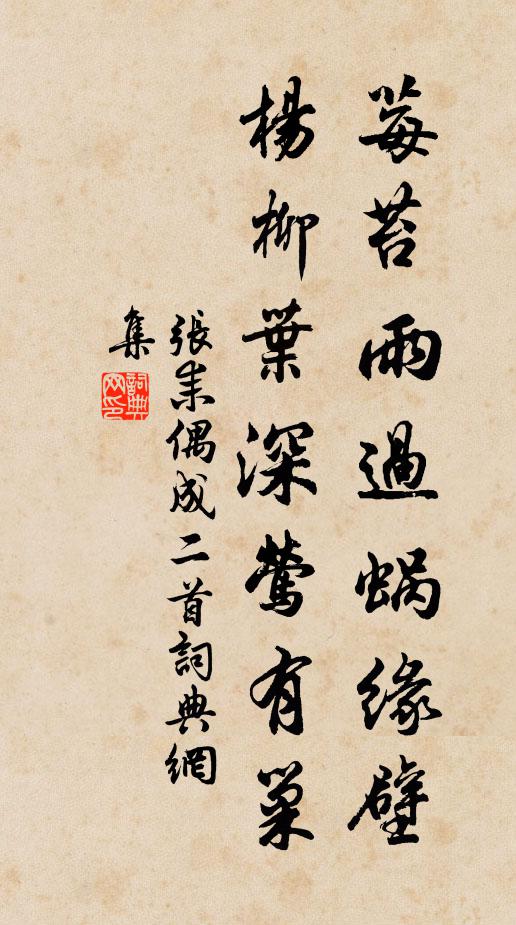 莓苔雨過蝸緣壁
楊柳葉深鶯有巢
張耒偶成二首詞典網
集
詞典
网印